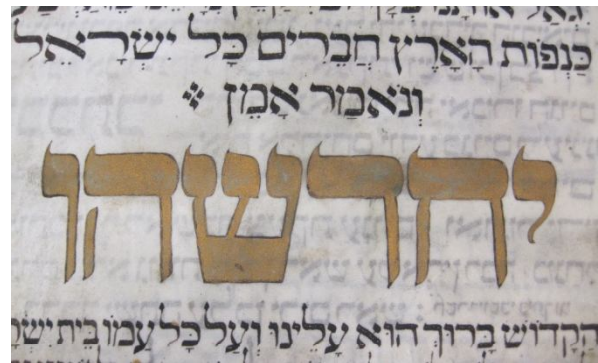 כַּנְפוֹת הָאָרֶץ חֲבֵרִים כָּל יִשְׂרָאֵל
וְנֹאמַר אָמֵן
יחדשהו
הַקָּדוֹשׁ בָּרוּךְ הוּא עָלֵינוּ וְעַל כָּל עַמּוֹ בֵּית